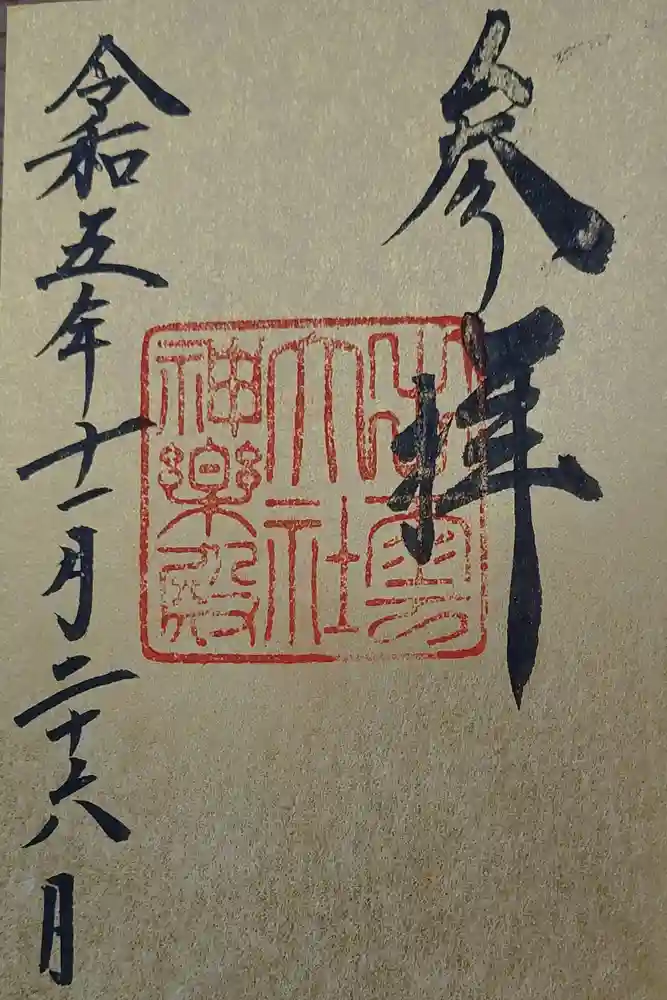 参拝
出雲
大社
神樂殿
令和五年十一月二十六日